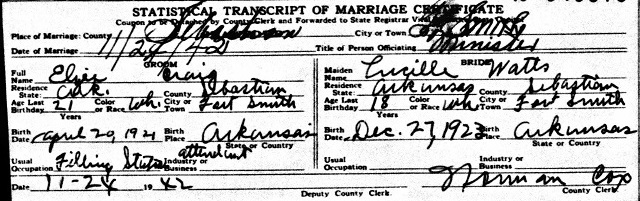 STATISTICAL TRANSCRIPT OF MARRIAGE CERTIFICATE
Coupon to be Detached by County Clerk and Forwarded to State Registrar
Place of Marriage: County Sebastian City or Town Ft. Smith
Date of Marriage 11/24/42 Title of Person Officiating Minister
GROOM BRIDE
Full Name Elzie Craig Maiden Name Lucille Watts
Residence State: Ark. County Sebastian Residence State: Arkansas County Sebastian
Age Last Birthday 21 Years Color or Race Wh. City or Town Fort Smith Age Last Birthday 18 Years Color or Race Wh City or Town Fort Smith
Birth Date april 20, 1921 Birth Place Arkansas Birth Date Dec. 27, 1923 Birth Place Arkansas
State or Country State or Country
Usual Occupation Filling Station attendant Industry or Business Usual Occupation Industry or Business
Date 11-24 1942 Norman Cox
Deputy County Clerk. County Clerk